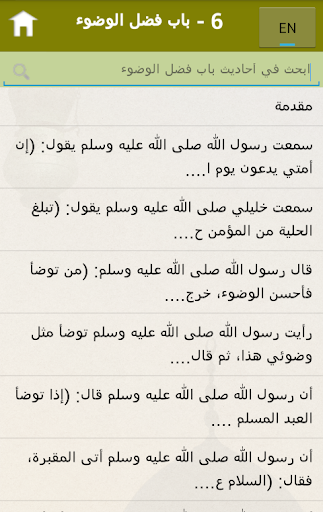 6 - باب فضل الوضوء
EN
ابحث في أحاديث باب فضل الوضوء
مقدمة
سمعت رسول الله صلى الله عليه وسلم يقول: (إن
أمتي يدعون يوم ا....
سمعت خليلي صلى الله عليه وسلم يقول: (تبلغ
الحلية من المؤمن ح....
قال رسول الله صلى الله عليه وسلم: (من توضأ
فأحسن الوضوء، خرج....
رأيت رسول الله صلى الله عليه وسلم توضأ مثل
وضوئي هذا، ثم قال....
أن رسول الله صلى الله عليه وسلم قال: (إذا توضأ
العبد المسلم ....
أن رسول الله صلى الله عليه وسلم أتى المقبرة،
فقال: (السلام ع....